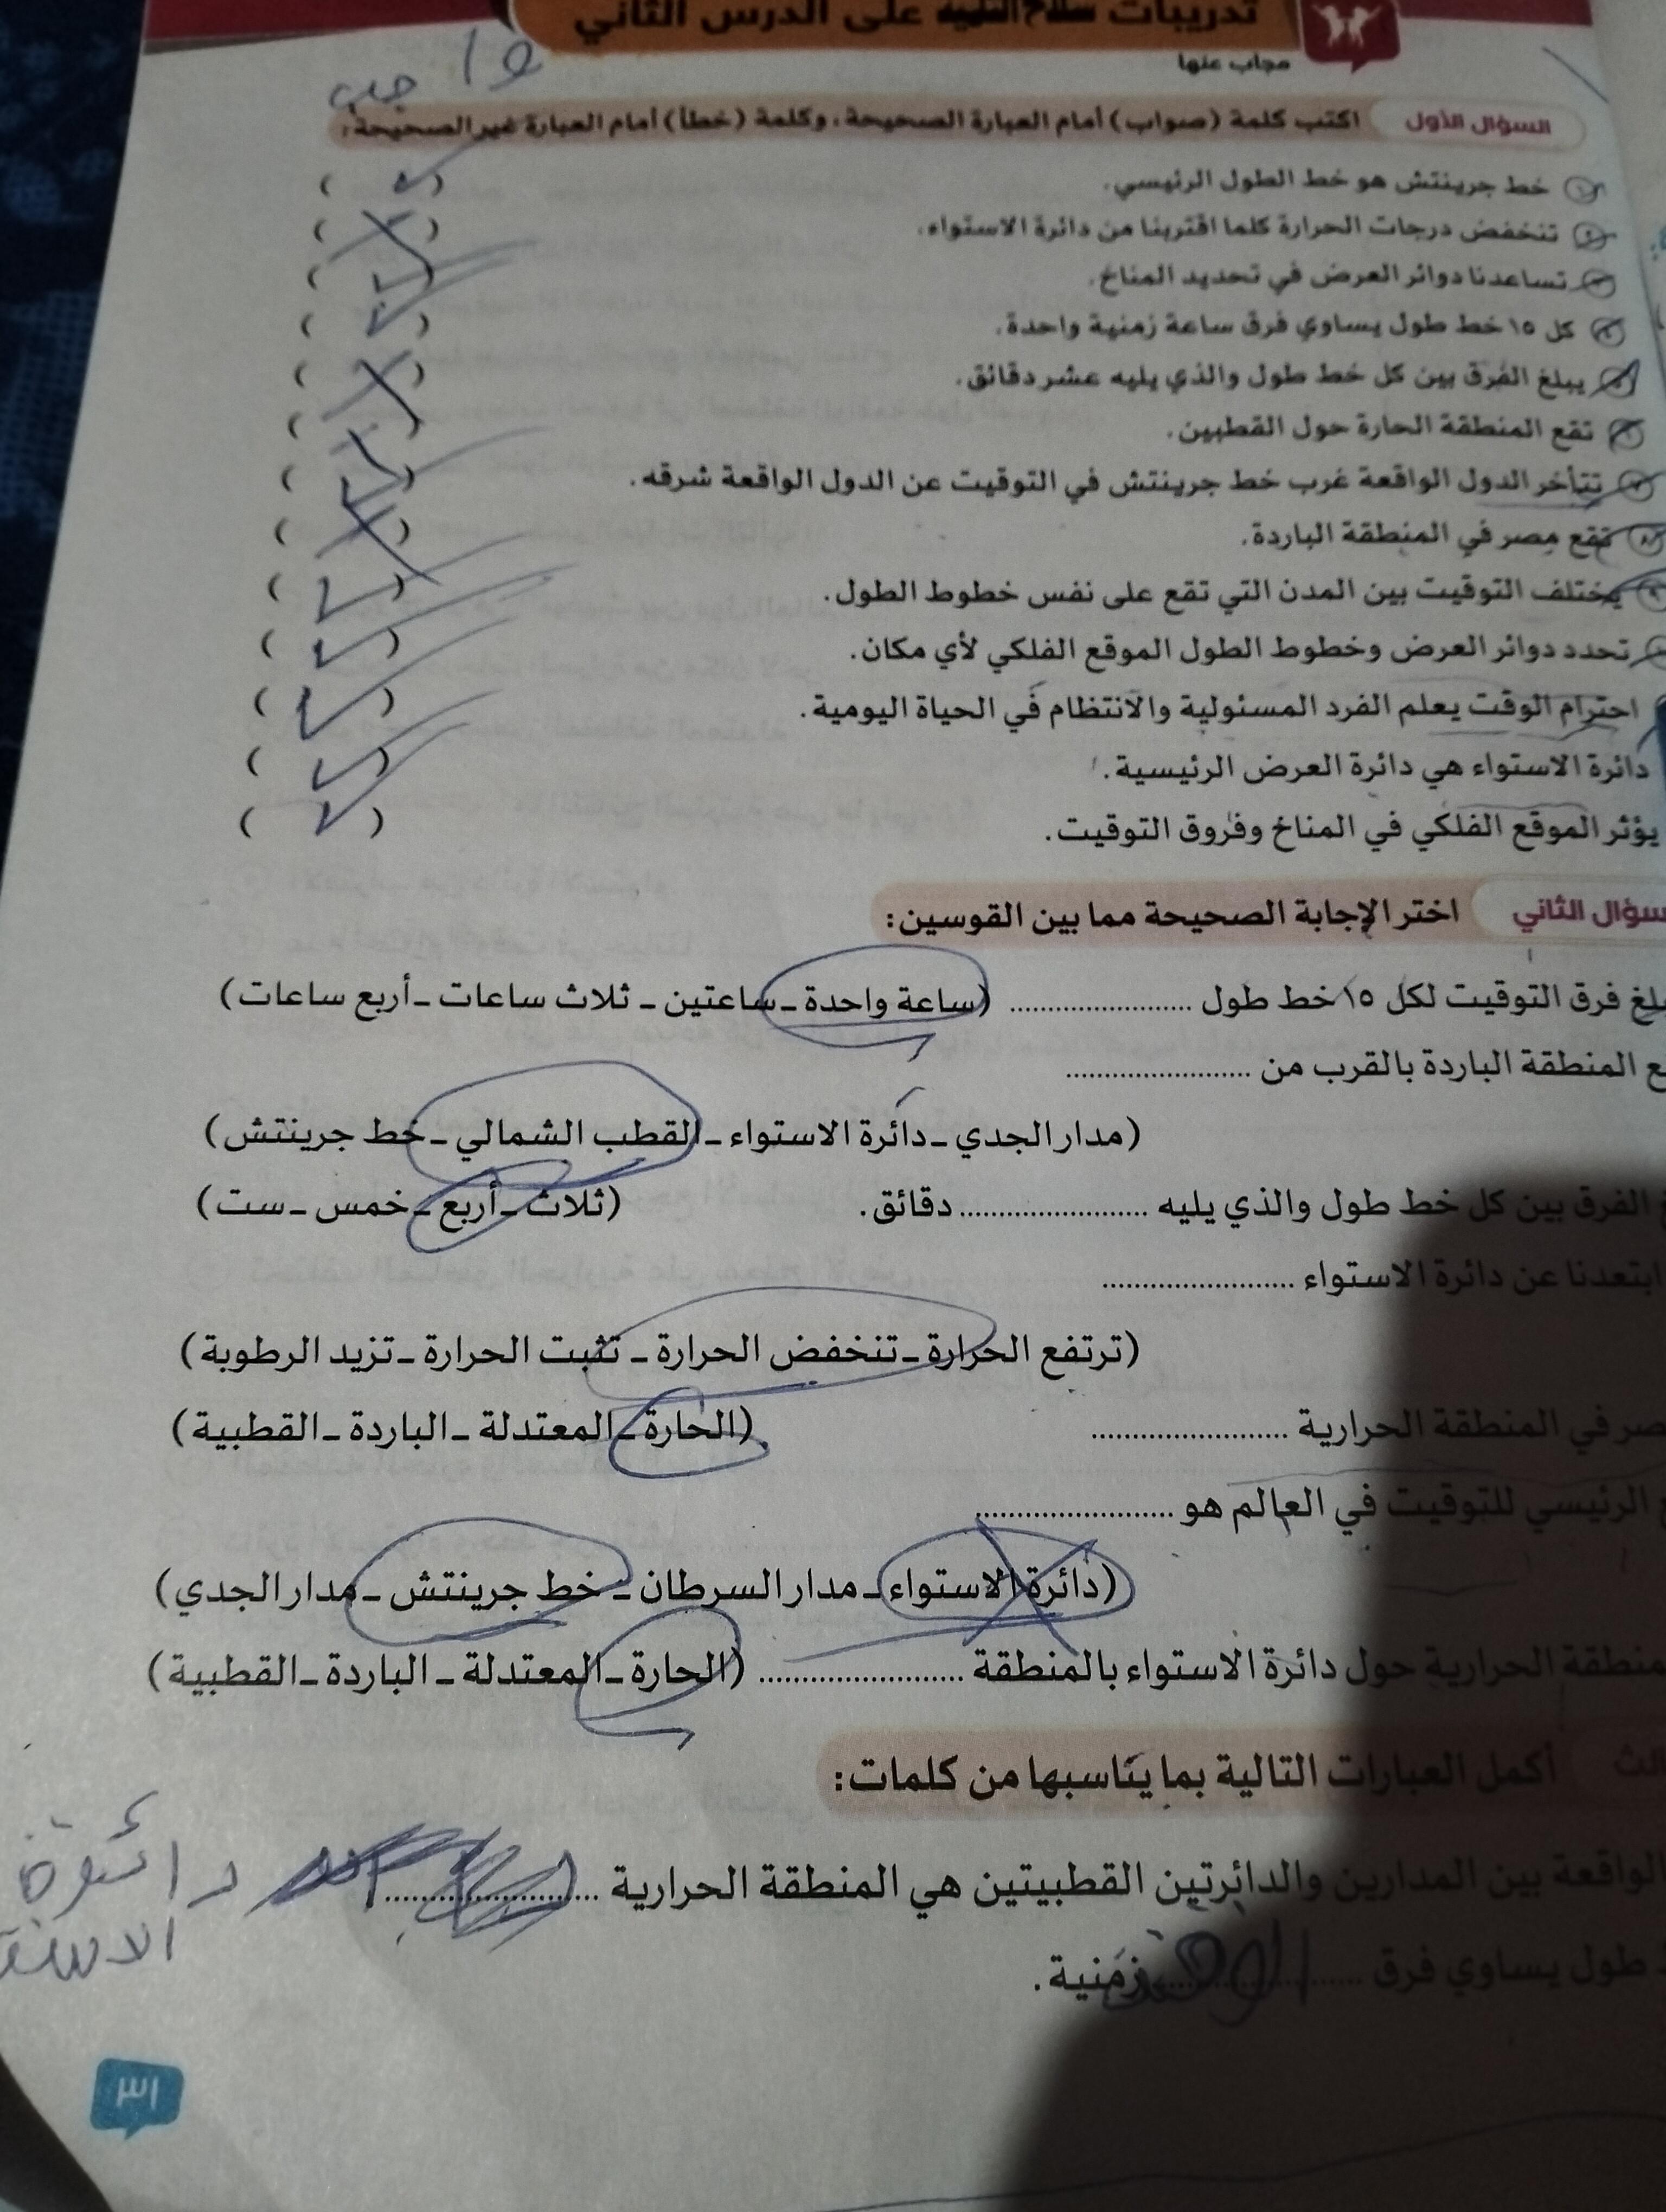 تدريبات سلاح التلميذ على الدرس الثاني
مجاب عنها
واجب
السؤال الأول اكتب كلمة (صواب) أمام العبارة الصحيحة، وكلمة (خطأ) أمام العبارة غير الصحيحة:
١ خط جرينتش هو خط الطول الرئيسي. ( ✓ )
٢ تنخفض درجات الحرارة كلما اقتربنا من دائرة الاستواء. ( X )
٣ تساعدنا دوائر العرض في تحديد المناخ. ( ✓ )
٤ كل ١٥ خط طول يساوي فرق ساعة زمنية واحدة. ( ✓ )
٥ يبلغ الفرق بين كل خط طول والذي يليه عشر دقائق. ( X )
٦ تقع المنطقة الحارة حول القطبين. ( )
٧ تتأخر الدول الواقعة غرب خط جرينتش في التوقيت عن الدول الواقعة شرقه. ( ✓ )
٨ تقع مصر في المنطقة الباردة. ( X )
٩ يختلف التوقيت بين المدن التي تقع على نفس خطوط الطول. ( ✓ )
تحدد دوائر العرض وخطوط الطول الموقع الفلكي لأي مكان. ( ✓ )
احترام الوقت يعلم الفرد المسئولية والانتظام في الحياة اليومية. ( ✓ )
دائرة الاستواء هي دائرة العرض الرئيسية. ( ✓ )
يؤثر الموقع الفلكي في المناخ وفروق التوقيت. ( ✓ )
سؤال الثاني اختر الإجابة الصحيحة مما بين القوسين:
بلغ فرق التوقيت لكل ١٥ خط طول ........................ (ساعة واحدة - ساعتين - ثلاث ساعات - أربع ساعات)
ع المنطقة الباردة بالقرب من ........................
(مدار الجدي - دائرة الاستواء - القطب الشمالي - خط جرينتش)
الفرق بين كل خط طول والذي يليه ........................ دقائق. (ثلاث - أربع - خمس - ست)
ابتعدنا عن دائرة الاستواء ........................
(ترتفع الحرارة - تنخفض الحرارة - تثبت الحرارة - تزيد الرطوبة)
صر في المنطقة الحرارية ........................ (الحارة - المعتدلة - الباردة - القطبية)
الرئيسي للتوقيت في العالم هو ........................
(دائرة الاستواء - مدار السرطان - خط جرينتش - مدار الجدي)
منطقة الحرارية حول دائرة الاستواء بالمنطقة ........................ (الحارة - المعتدلة - الباردة - القطبية)
الث أكمل العبارات التالية بما يناسبها من كلمات:
الواقعة بين المدارين والدائرتين القطبيتين هي المنطقة الحرارية ........................ دائرة
الاستو
طول يساوي فرق ........................ زمنية.
٣١